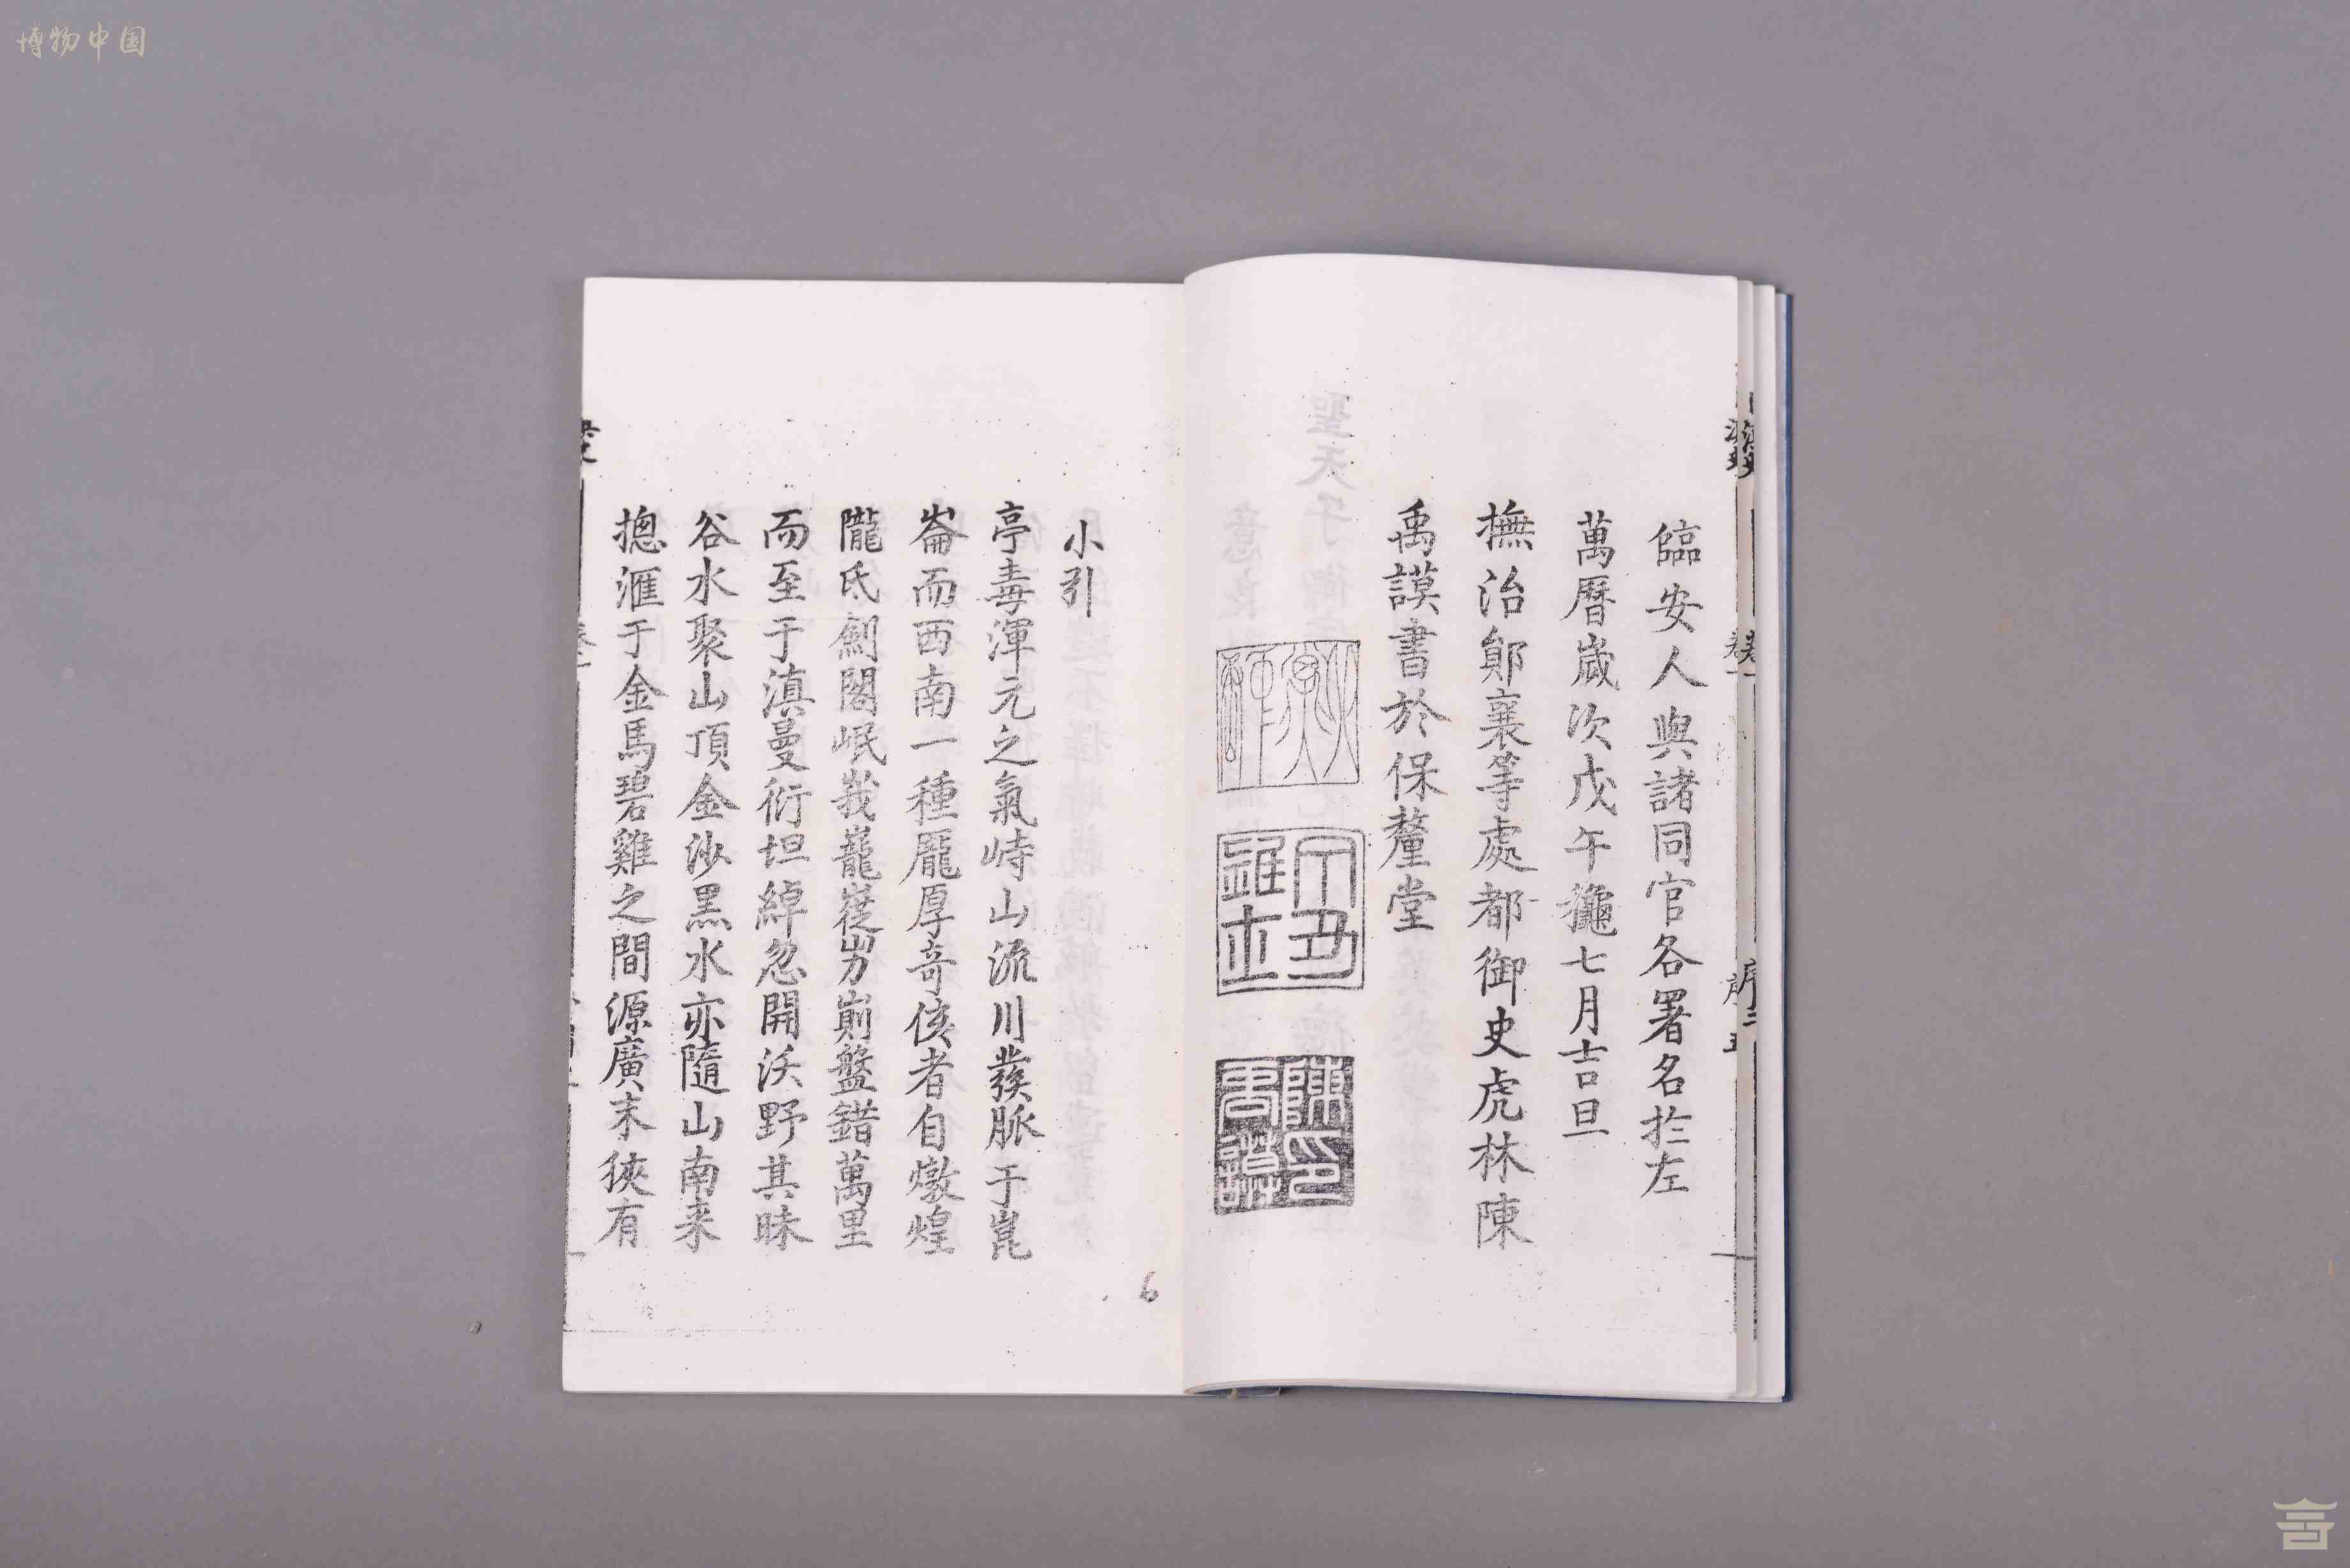 博物中国
臨安人與諸同官各署名扵左
萬曆嵗次戊午龝七月吉旦
撫治鄖襄等處都御史虎林陳
禹謨書於保釐堂
陳印禹謨
小引
亭毒渾元之氣峙山流川發脈于崑
崙而西南一種龎厚竒侅者自燉煌
隴氐劍閣岷峩巃嵸屴崱盤錯萬里
而至于滇曼衍坦綽忽開沃野其昧
谷水聚山頂金沙黑水亦隨山南来
摠滙于金馬碧雞之間源廣末狹有
6